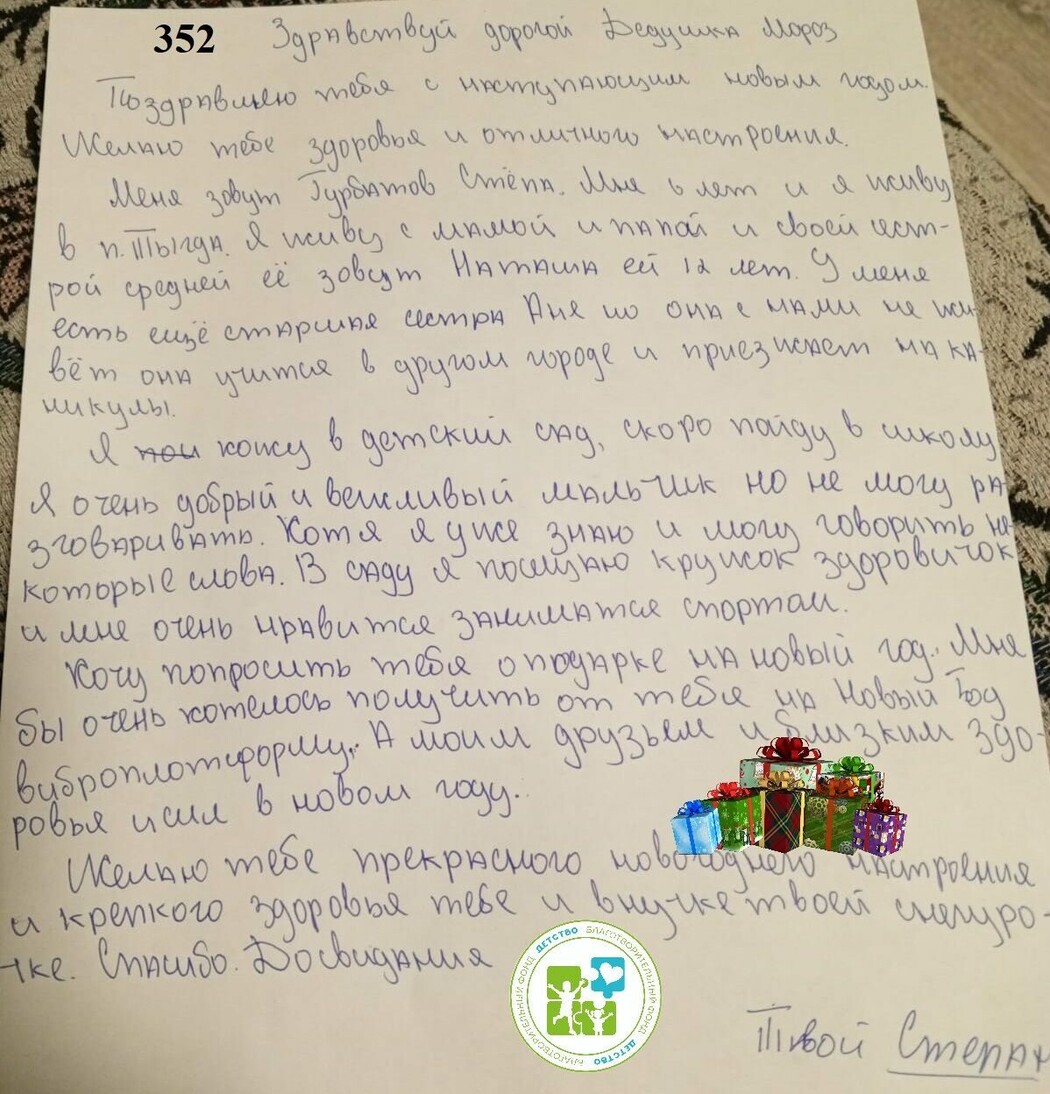 352
Здравствуй дорогой Дедушка Мороз
Поздравляю тебя с наступающим новым годом.
Желаю тебе здоровья и отличного настроения.
Меня зовут Гурбатов Стёпа. Мне 6 лет и я живу
в п. Тыгда. Я живу с мамой и папой и своей сест-
рой средней её зовут Наташа ей 12 лет. У меня
есть ещё старшая сестра Аня но она с нами не жи-
вёт она учится в другом городе и приезжает на ка-
никулы.
Я хожу в детский сад, скоро пойду в школу
Я очень добрый и вежливый мальчик но не могу ра-
зговаривать. Хотя я уже знаю и могу говорить не-
которые слова. В саду я посещаю кружок здоровичок
и мне очень нравится заниматся спортом.
Хочу попросить тебя о подарке на новый год. Мне
бы очень хотелось получить от тебя на Новый Год
виброплотформу. А моим друзьям и близким здо-
ровья и сил в новом году.
Желаю тебе прекрасного новогоднего настроения
и крепкого здоровья тебе и внучке твоей снегуро-
чке. Спасибо. Досвидания
БЛАГОТВОРИТЕЛЬНЫЙ ФОНД ДЕТСТВО БЛАГОТВОРИТЕЛЬНЫЙ ФОНД ДЕТСТВО
Твой Степан